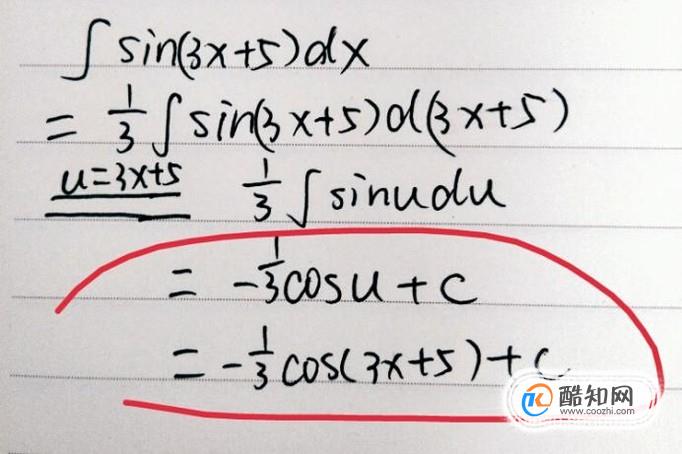 ∫ sin(3x+5)dx
= 1/3 ∫ sin(3x+5)d(3x+5)
u=3x+5 1/3 ∫ sinudu
= -1/3 cosu + c
= -1/3 cos(3x+5)+c
酷知网
www.coozhi.com